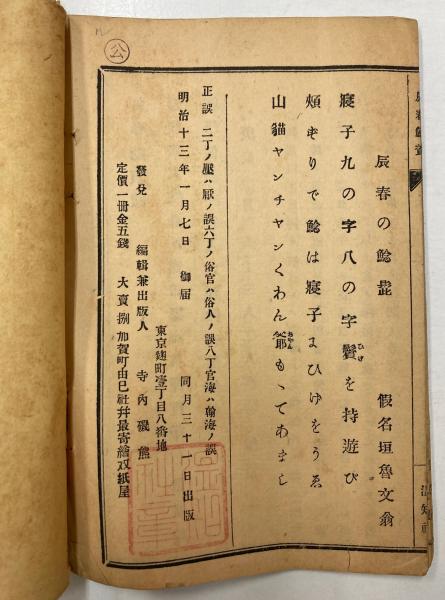 公
辰春の鯰髭　假名垣魯文翁
寝子九の字八の字鬚を持遊び
頰ずりで鯰は寝子にひげをうゑ
山猫ヤンチヤンくわん爺もゝてあまし
正誤　二丁ノ壓ハ厭ノ誤六丁ノ俗官ハ俗人ノ誤八丁官海ハ翰海ノ誤
明治十三年一月七日　御届　同月三十一日出版
東京麹町壹丁目八番地
發兌　編輯兼出版人　寺內磯熊
定價一冊金五錢　大賣捌加賀町由己社幷最寄繪双紙屋